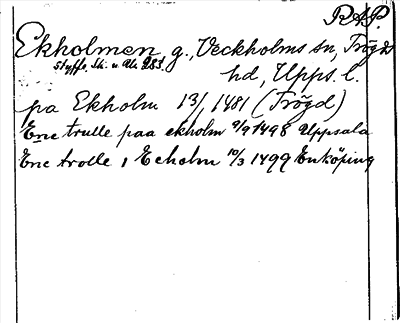 R.A.P.
Ekholmen g., Veckholms sn, Trögds
Styffe, Sk. u. Un. 283. hd, Upps. l.
pa Ekholm 13/1 1481 (Trögd)
Ene trulle paa ekholm 9/9 1498 Uppsala
Ene trolle i Echolm 10/3 1499 Enköping